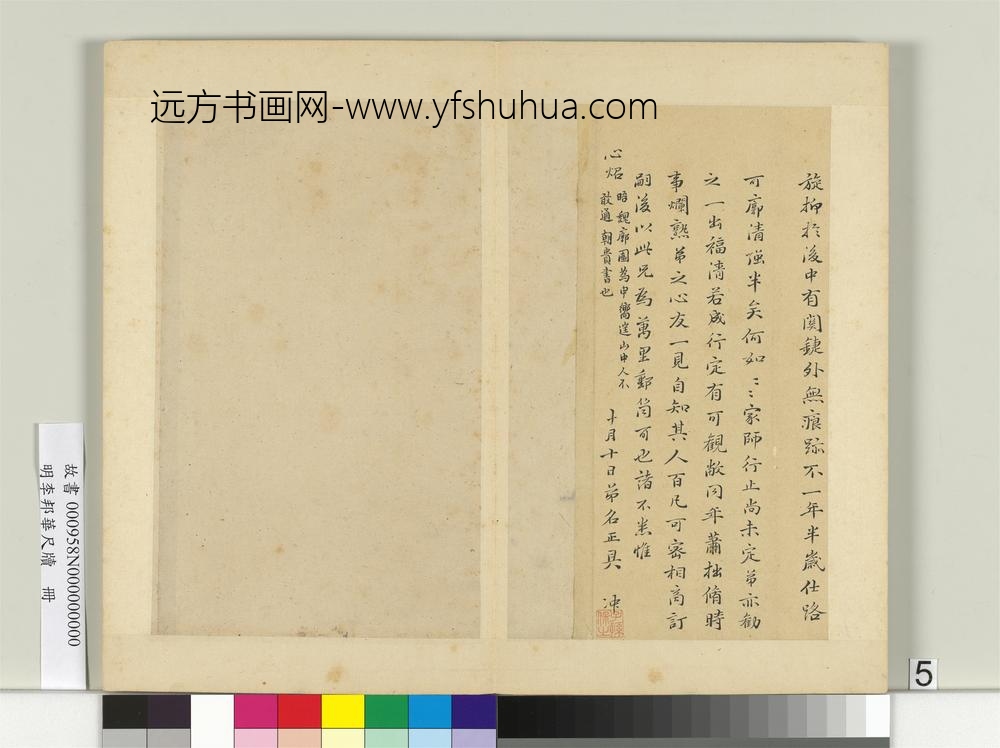 远方书画网-www.yfshuhua.com
旋抑於後中有關鍵外無痕跡不一年半歲仕路
可廓清強半矣何如〻〻家師行止尚未定弟亦勸
之一出福清若成行定有可觀敝同年蕭拙脩時
事爛熟弟之心友一見自知其人百凡可密相商訂
嗣後以此兄為萬里郵筒可也諸不悉惟
心炤
晤魏廓園為申嚮往山中人不
敢通朝貴書也
十月十日弟名正具
沖
故書 000958N000000000
明李邦華尺牘 冊
5